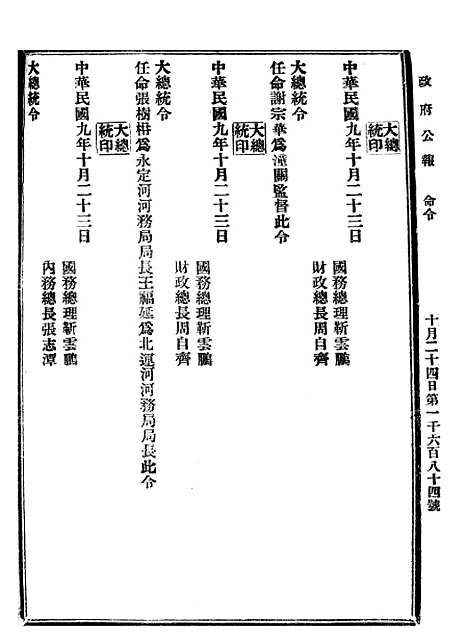 政府公報　命令　十月二十四日第一千六百八十四號
大總統印
中華民國九年十月二十三日
國務總理靳雲鵬
財政總長周自齊
大總統令
任命謝宗華爲潼關監督此令
大總統印
中華民國九年十月二十三日
國務總理靳雲鵬
財政總長周自齊
大總統令
任命張樹枏爲永定河河務局局長王福延爲北運河河務局局長此令
大總統印
中華民國九年十月二十三日
國務總理靳雲鵬
內務總長張志潭
大總統令